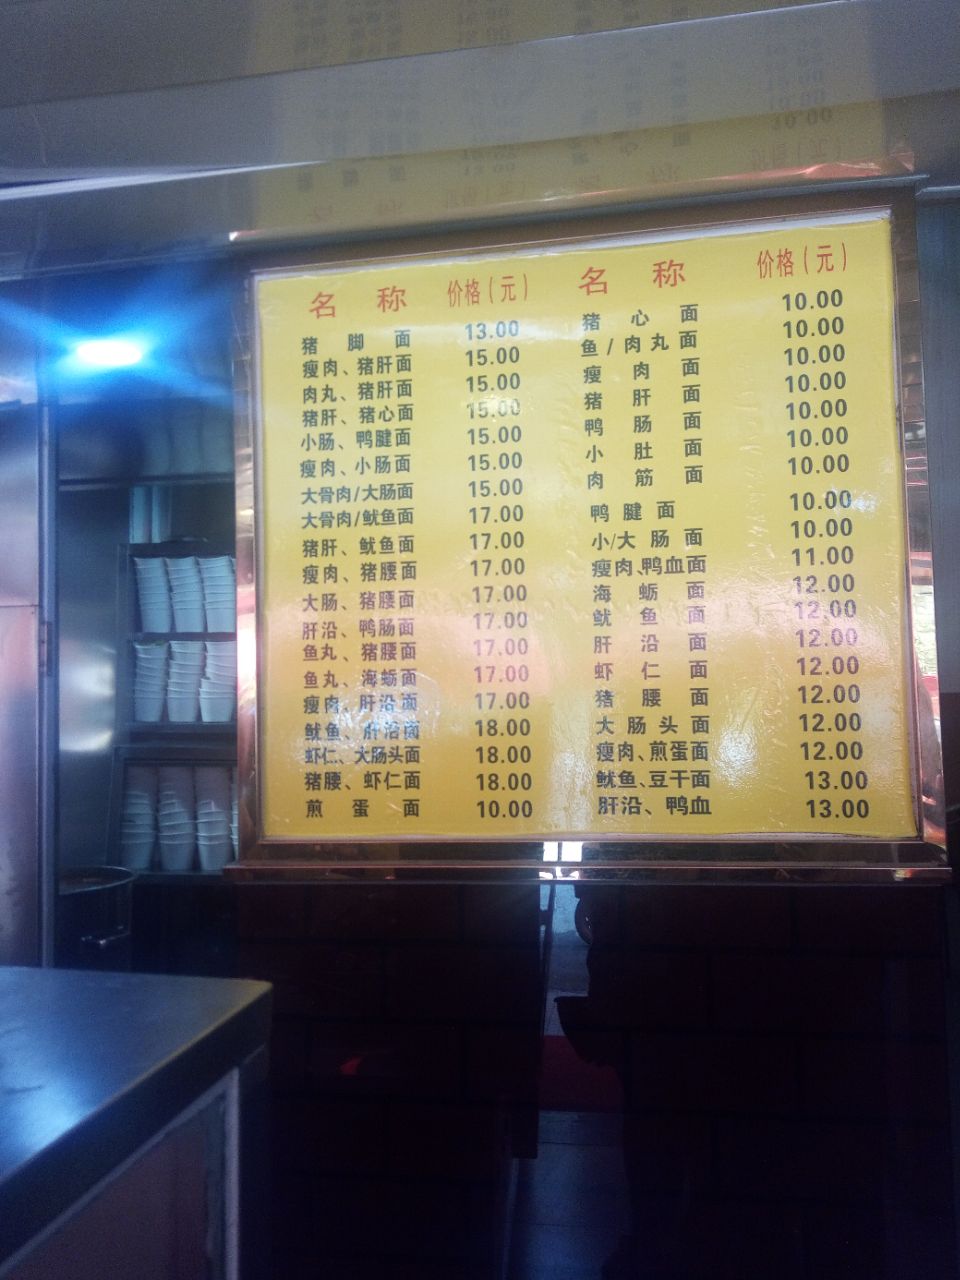 名 称 价格(元)
猪 脚 面 13.00
瘦肉、猪肝面 15.00
肉丸、猪肝面 15.00
猪肝、猪心面 15.00
小肠、鸭腱面 15.00
瘦肉、小肠面 15.00
大骨肉/大肠面 15.00
大骨肉/鱿鱼面 17.00
猪肝、鱿鱼面 17.00
瘦肉、猪腰面 17.00
大肠、猪腰面 17.00
肝沿、鸭肠面 17.00
鱼丸、猪腰面 17.00
鱼丸、海蛎面 17.00
瘦肉、肝沿面 17.00
鱿鱼、肝沿面 18.00
虾仁、大肠头面 18.00
猪腰、虾仁面 18.00
煎 蛋 面 10.00
名 称 价格(元)
猪 心 面 10.00
鱼/肉丸面 10.00
瘦 肉 面 10.00
猪 肝 面 10.00
鸭 肠 面 10.00
小 肚 面 10.00
肉 筋 面 10.00
鸭 腱 面 10.00
小/大肠面 10.00
瘦肉、鸭血面 11.00
海 蛎 面 12.00
鱿 鱼 面 12.00
肝 沿 面 12.00
虾 仁 面 12.00
猪 腰 面 12.00
大肠头面 12.00
瘦肉、煎蛋面 12.00
鱿鱼、豆干面 13.00
肝沿、鸭血 13.00